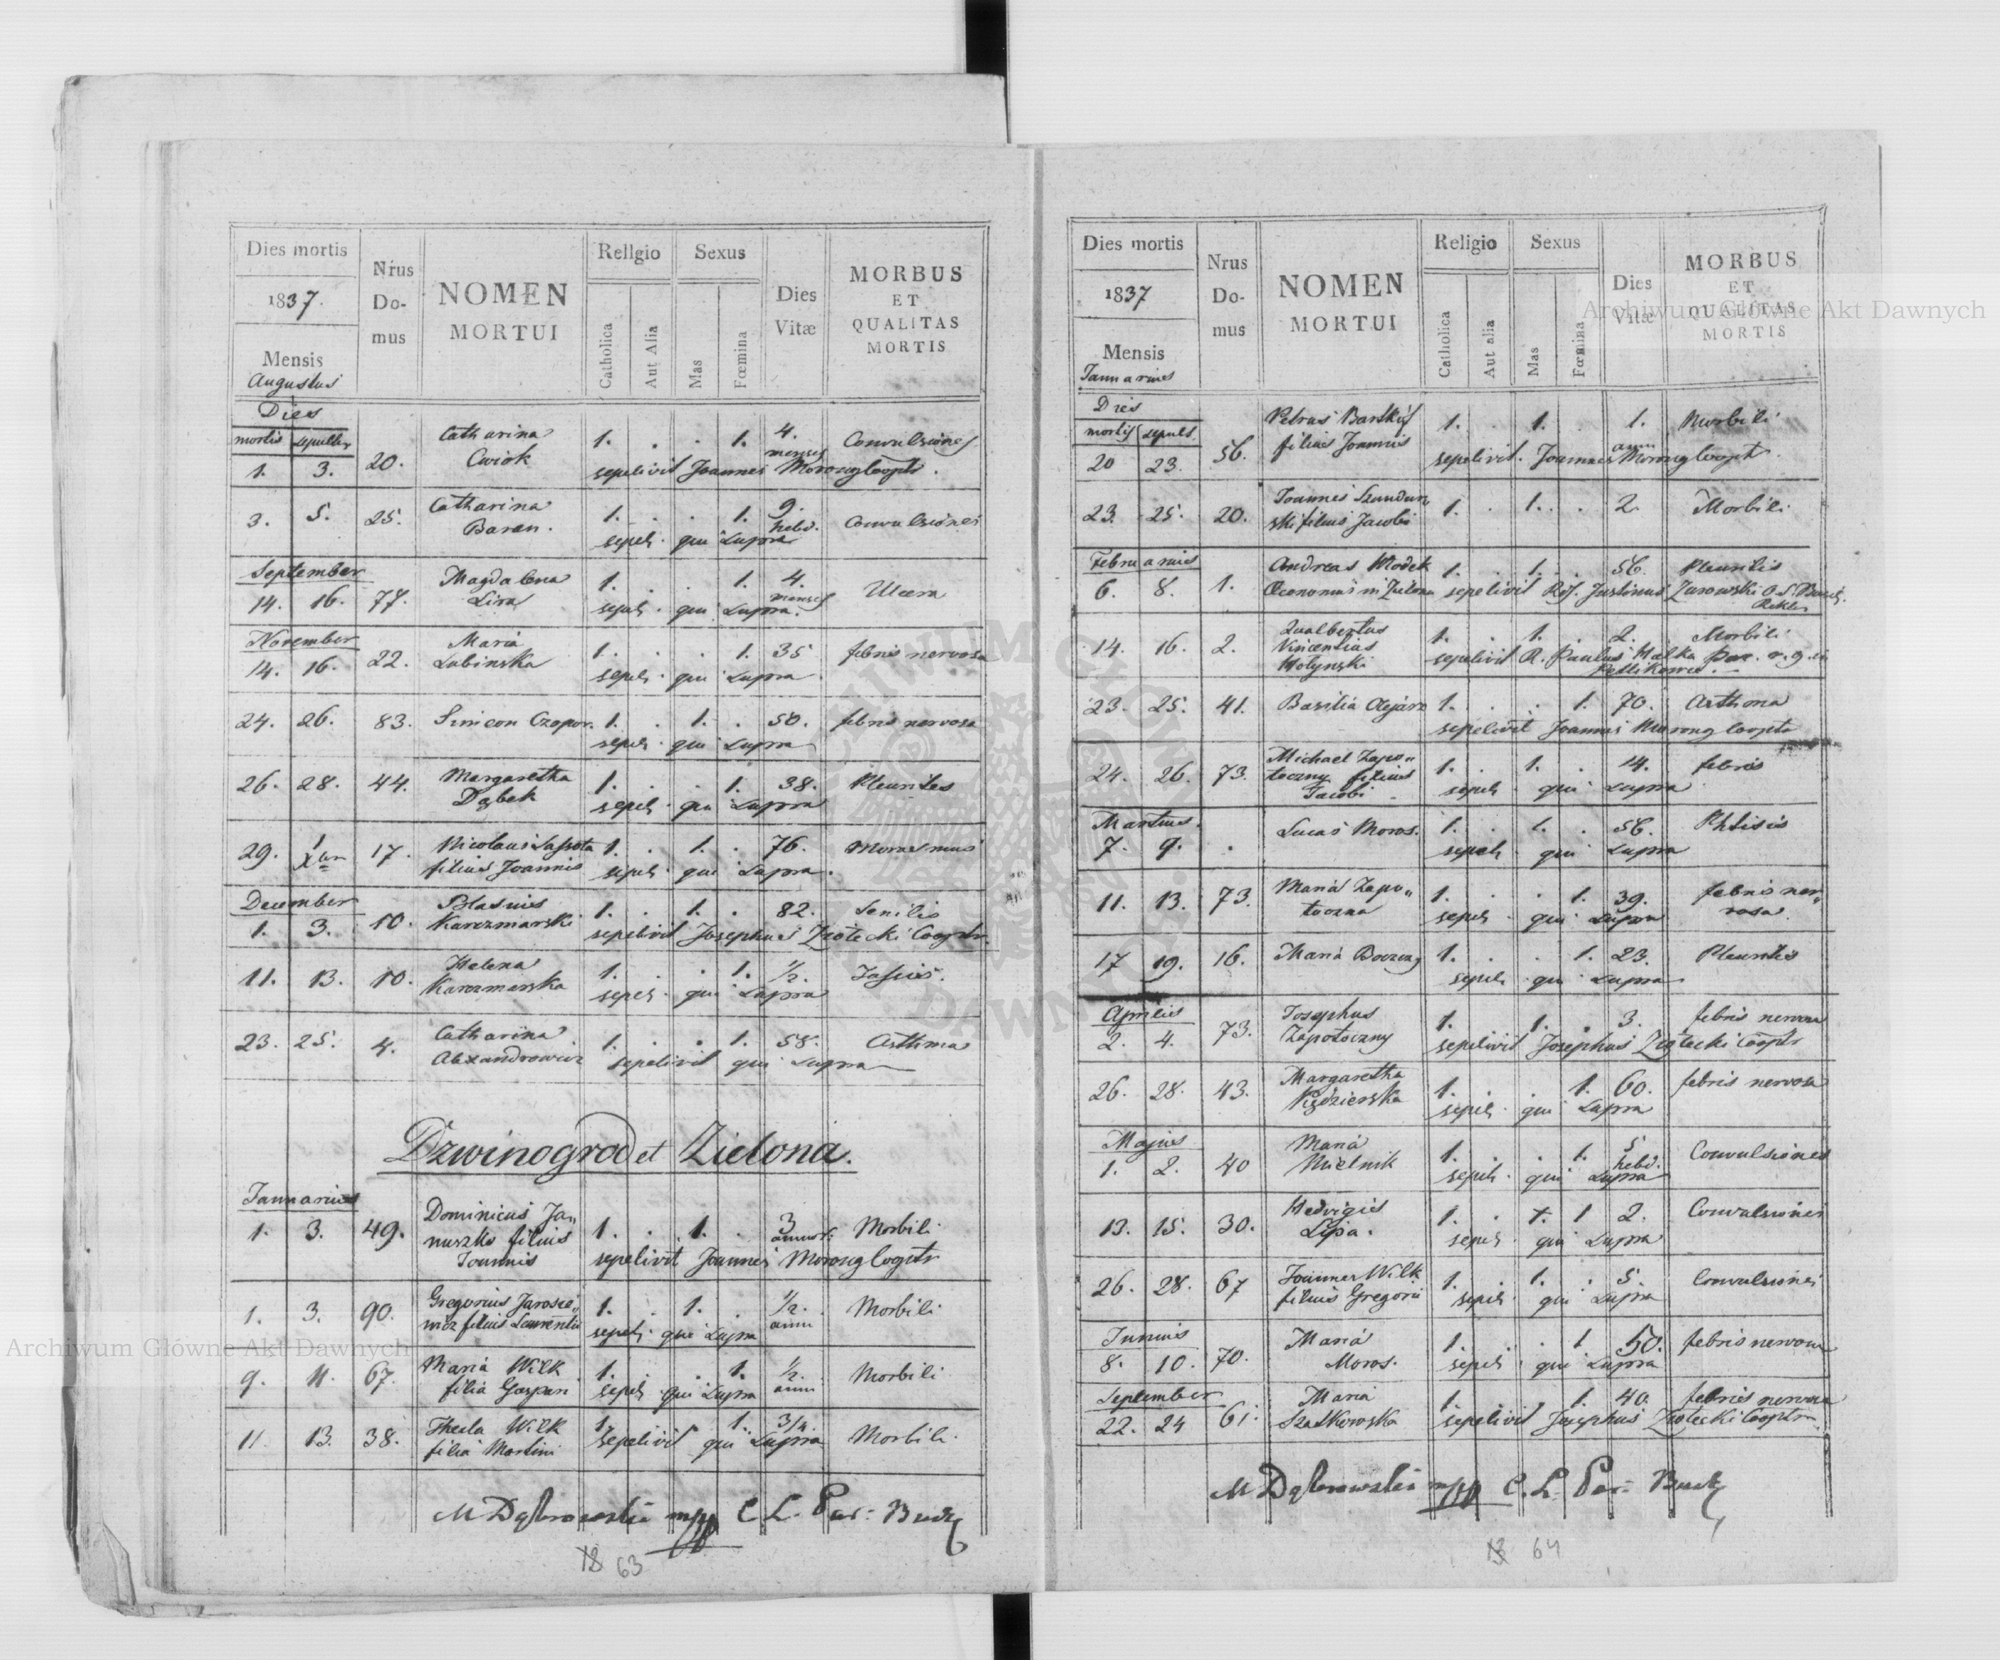 Dies mortis
1837.
Mensis
Augustus
Nrus Domus
NOMEN MORTUI
Religio
Catholica
Aut Alia
Sexus
Mas
Fœmina
Dies Vitæ
MORBUS ET QUALITAS MORTIS
Dies
mortis sepultu
1. 3. 20. Catharina Cwiok 1. . . 1. 4. menses Convulsiones
sepelivit Joannes Morong Cooptr.
3. 5. 25. Catharina Baran. 1. . . 1. 9. hebd. Convulsiones
sepeli. qui supra
September
14. 16. 77. Magdalena Lira 1. . . 1. 4. menses Ulcera
sepeli. qui supra.
November
14. 16. 22. Maria Lubinska 1. . . 1. 35 febris nervosa
sepeli. qui supra
24. 26. 83. Simeon Czopor. 1. . 1. . 50. febris nervosa
sepeli. qui supra
26. 28. 44. Margaretha Dąbek 1. . . 1. 38. Pleuritis
sepeli. qui supra
29. 1 Xbr 17. Nicolaus filius Joannis 1. . 1. . 76. Morasmus
sepeli. qui supra.
December
1. 3. 10. Blasius Karczmarski 1. . 1. . 82. Senilis
sepelivit Josephus Złotecki Cooptr.
11. 13. 10. Helena Karczmarska 1. . . 1. ½.
sepeli. qui supra
23. 25. 4. Catharina Alexandrowicz 1. . . 1. 58. Asthma
sepelivit qui supra
Dzwinogrod et Zielona.
Januarius
1. 3. 49. Dominicus Januszko filius Joannis 1. . 1. . 3 annor. Morbili
sepelivit Joannes Morong Cooptr
1. 3. 90. Gregorius Jaroszewicz filius Laurentii 1. . 1. . ½. anni Morbili
sepeli. qui supra
9. 11. 67. Maria Wilk filia Gaspari 1. . . 1. ½. anni Morbili
sepeli qui supra
11. 13. 38. Thecla Wilk filia Martini 1. . . 1. 3/4. Morbili.
sepelivit qui supra
M Dąbrowski mpp C. L. Par: Bucz
18 63
Dies mortis
1837
Mensis
Januarius
Nrus Domus
NOMEN MORTUI
Religio
Catholica
Aut alia
Sexus
Mas
Fœmina
Dies Vitæ
MORBUS ET QUALITAS MORTIS
Dies
mortis sepult
20 23. 56. Petrus Barskij filius Joannis 1. . 1. . 1. anni Morbili
sepelivit. Joannes Morong Coopt.
23. 25. 20. Joannes Szandurski filius Jacobi 1. . 1. . 2. Morbili
Februarius
6. 8. 1. Andreas Wodek Oeconomus in Zielona 1. . 1. . 56. Pleuritis
sepelivit Rss. Justinus Zarowski
14. 16. 2. Vincentius Wołynski 1. . 1. . 2. Morbili
sepelivit R. Paulus Halka Par. r. g. in Petlikowce
23. 25. 41. Basilia Olejarz 1. . . 1. 70. Asthma
sepelivit Joannes Morong Cooptr
24. 26. 73. Michael Zapotoczny filius Jacobi 1. . 1. . 14. febris
sepeli qui supra
Martius.
7. 9. . Lucas Moros. 1. . 1. . 56. Phtisis
sepeli. qui supra
11. 13. 73. Maria Zapotoczna 1. . . 1. 39. febris nervosa.
sepeli qui supra
17 19. 16. Maria 1. . . 1. 23. Pleuritis
sepeli. qui supra
Aprilis
2. 4. 73. Josephus Zapotoczny 1. . 1. . 3. febris nervosa
sepelivit Josephus Złotecki Cooptr
26. 28. 43. Margaretha 1. . . 1. 60. febris nervosa
sepeli. qui supra
Majus
1. 2. 40 Maria Mielnik 1. . . 1. 5 hebd. Convulsiones
sepeli. qui supra
13. 15. 30. Hedvigis Lipa. 1. . 1. 1 2. Convulsiones
sepeli. qui supra
26. 28. 67 Joannes Wilk filius Gregorii 1. . 1. . 5. Convulsiones
sepeli. qui supra
Junius
8. 10. 70. Maria Moros. 1. . . 1 50. febris nervosa
sepeli. qui supra
September
22. 24 61. Maria Szatkowska 1. . . 1. 40. febris nervosa
sepelivit Josephus Złotecki Cooptr.
M Dąbrowski mpp C. L. Par: Bucz
64
Archiwum Główne Akt Dawnych
Archiwum Główne Akt Dawnych